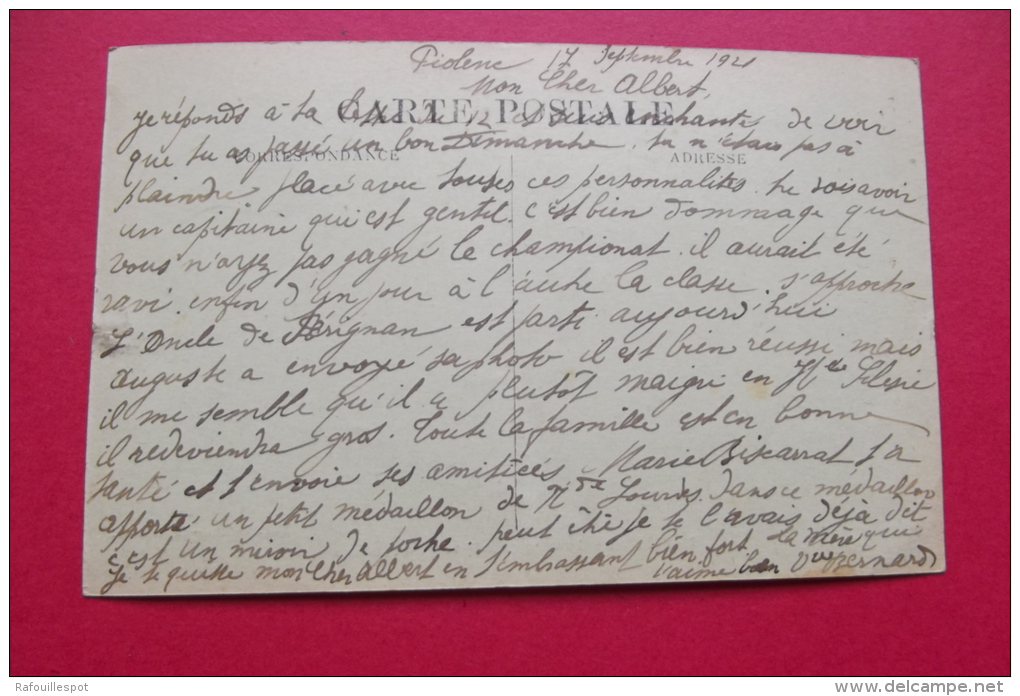 Piolenc 17 Septembre 1921
Mon Cher Albert,
CARTE POSTALE
je réponds à ta lettre du 12 et suis enchantée de voir
CORRESPONDANCE
ADRESSE
que tu as passé un bon Dimanche, tu n'étais pas à
plaindre placé avec toutes ces personnalités. tu dois avoir
un capitaine qui est gentil. c'est bien dommage que
vous n'ayez pas gagné le championat. il aurait été
ravi. enfin d'un jour à l'autre la classe s'approche
L'Oncle de Sérignan est parti aujourd'hui
auguste a envoyé sa photo il est bien réussi mais
il me semble qu'il a plutôt maigri en Hte Silesie
il redeviendra gros. Toute la famille est en bonne
santé et t'envoie ses amitiées. Marie Biscarrat t'a
apporté un petit médaillon de N. De Lourdes. dans ce médaillon
c'est un miroir de poche. peut être je te l'avais déjà dit
je te quitte mon Cher Albert en t'embrassant bien fort la mère qui
t'aime bien Vve Bernard
Rafouillespot
www.delcampe.net